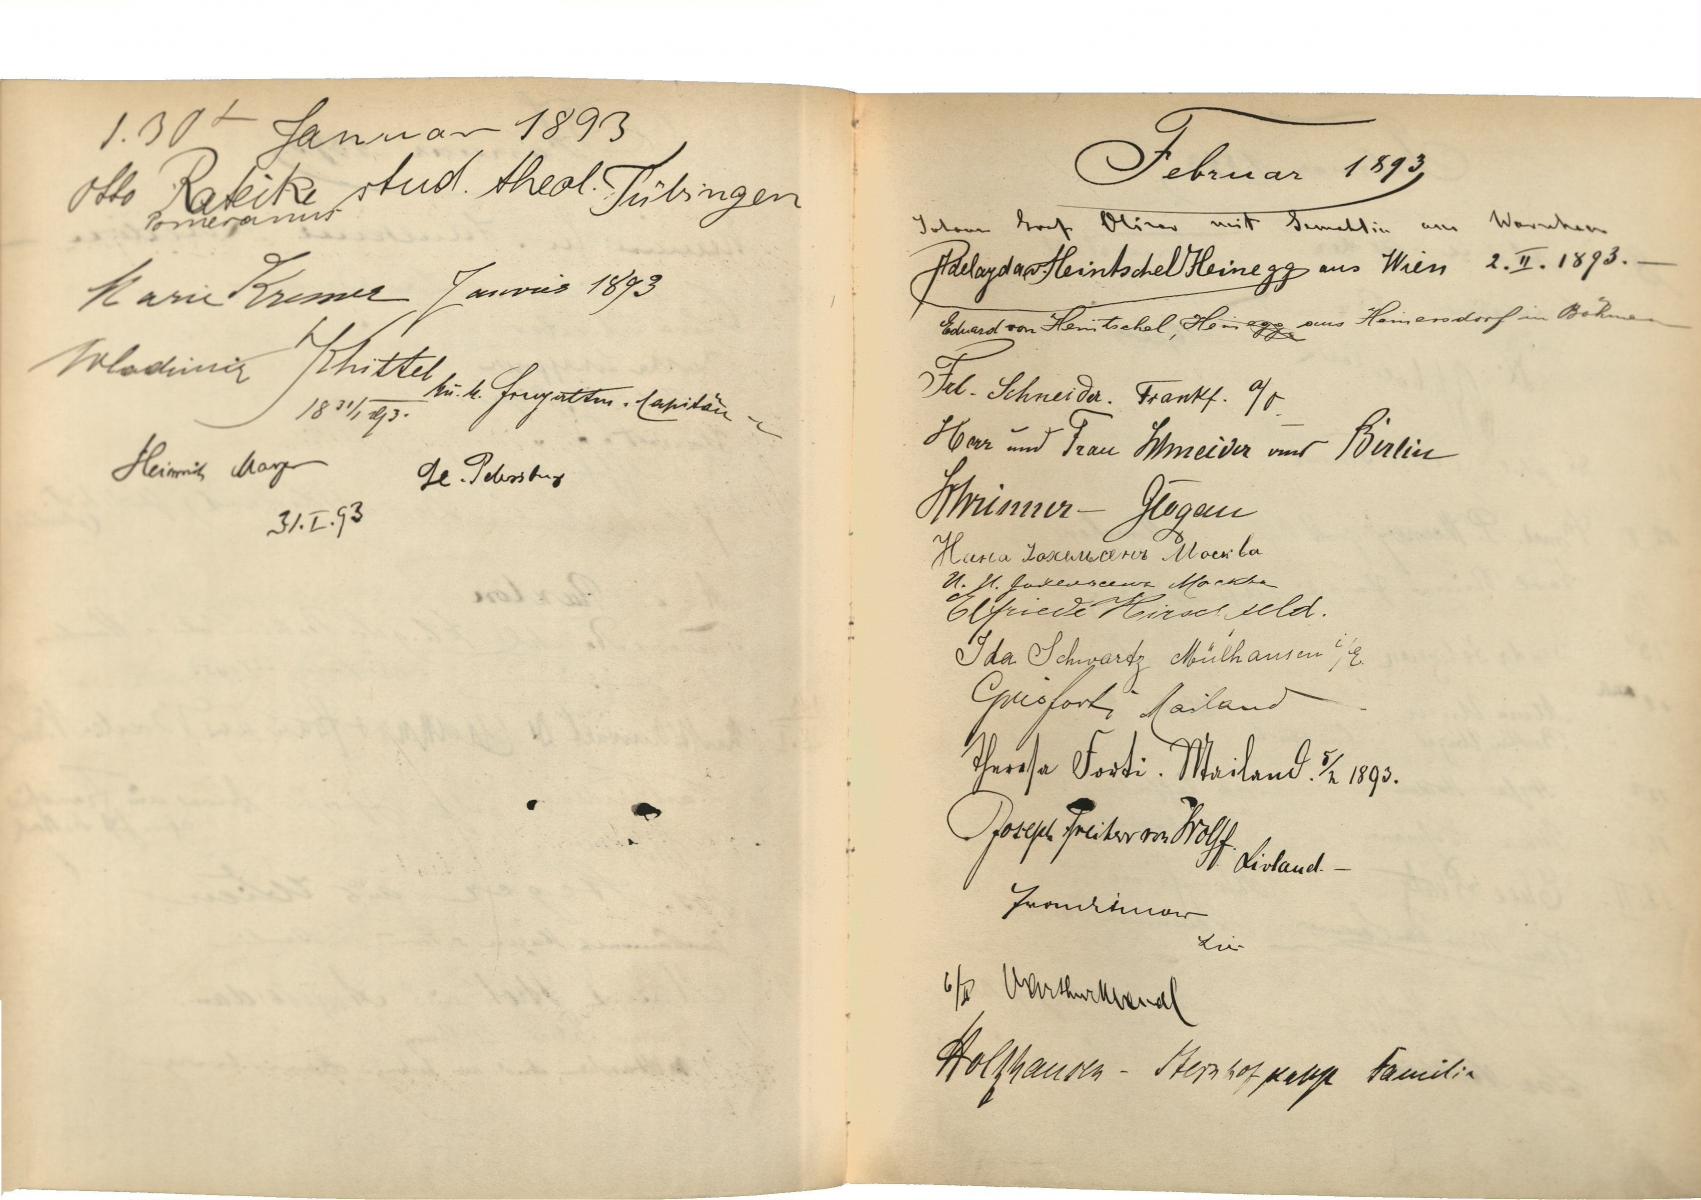 Januar 1893
Otto Rateike stud. theol. Tübingen
Pomeranus
Marie Kremer Januar 1893
Wladimir Khittel
k. u. k. Fregatten-Capitän
18 31/1 93.
Heinrich Mayer St. Petersburg
31.I.93
Februar 1893
Graf mit Gemahlin aus
Adelayda v. Heintschel Heinegg aus Wien 2.II.1893.—
Eduard von Heintschel, Heinegg aus Heinersdorf in Böhmen
Frl. Schneider. Frankf. a/O
Herr und Frau Schneider aus Berlin
Glogau
Москва
И. И. Москва
Elfriede Hirschfeld.
Ida Schwartz Mülhausen i/E.
Mailand
Theresa Forti. Mailand. 5/2 1893.
Joseph Freiherr von Wolff.
Livland.—
6/II
Holzhausen - Familie